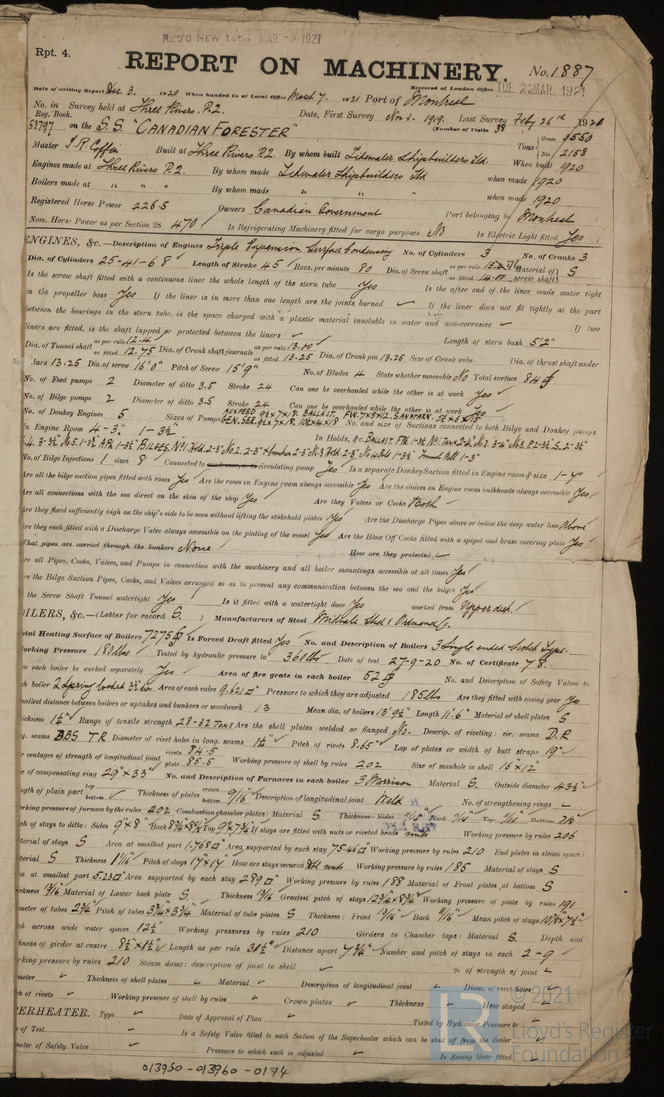 REC'D NEW YORK MAR -9 1921
Rpt. 4.
REPORT ON MACHINERY. No. 1887
Received at London Office TUE. 22 MAR. 1921
Date of writing Report Dec 3. 1920 When handed in at Local Office March 7. 1921 Port of Montreal
No. in Survey held at Three Rivers. P.Q. Date, First Survey Nov 1. 1919. Last Survey Feby 26th 1921
Reg. Book. (Number of Visits 38
53797 on the S.S. "CANADIAN FORESTER" Tons Gross 3550 Net 2158
Master J. R. Coffin Built at Three Rivers P.Q. By whom built Tidewater Shipbuilders Ltd. When built 1920
Engines made at Three Rivers P.Q. By whom made Tidewater Shipbuilders Ltd when made 1920
Boilers made at " " " By whom made " " " when made 1920
Registered Horse Power 226.5 Owners Canadian Government Port belonging to Montreal
Nom. Horse Power as per Section 28 470 Is Refrigerating Machinery fitted for cargo purposes No Is Electric Light fitted Yes
ENGINES, &c.—Description of Engines Triple Expansion Surface Condensing No. of Cylinders 3 No. of Cranks 3
Dia. of Cylinders 25-41-68 Length of Stroke 45 Revs. per minute 80 Dia. of Screw shaft as per rule as fitted 14.00 Material of screw shaft S
Is the screw shaft fitted with a continuous liner the whole length of the stern tube Yes Is the after end of the liner made water tight
in the propeller boss Yes If the liner is in more than one length are the joints burned ✓ If the liner does not fit tightly at the part
between the bearings in the stern tube, is the space charged with a plastic material insoluble in water and non-corrosive ✓ If two
liners are fitted, is the shaft lapped or protected between the liners ✓ Length of stern bush 5'2"
Dia. of Tunnel shaft as per rule 12.4 as fitted 12.75 Dia. of Crank shaft journals as per rule 13.00 as fitted 13.25 Dia. of Crank pin 13.25 Size of Crank webs Dia. of thrust shaft under
collars 13.25 Dia. of screw 16'0" Pitch of Screw 15'9" No. of Blades 4 State whether moveable No Total surface 84
No. of Feed pumps 2 Diameter of ditto 3.5 Stroke 24 Can one be overhauled while the other is at work Yes
No. of Bilge pumps 2 Diameter of ditto 3.5 Stroke 24 Can one be overhauled while the other is at work Yes
No. of Donkey Engines 5 Sizes of Pumps No. and size of Suctions connected to both Bilge and Donkey pumps
In Engine Room 4-3", 1-3½" In Holds, &c.
No. of Bilge Injections 1 sizes 8 Connected to circulating pump Yes Is a separate Donkey Suction fitted in Engine room & size 1-4"
Are all the bilge suction pipes fitted with roses Yes Are the roses in Engine room always accessible Yes Are the sluices on Engine room bulkheads always accessible Yes
Are all connections with the sea direct on the skin of the ship Yes Are they Valves or Cocks Both
Are they fixed sufficiently high on the ship's side to be seen without lifting the stokehold plates Yes Are the Discharge Pipes above or below the deep water line Above
Are they each fitted with a Discharge Valve always accessible on the plating of the vessel Yes Are the Blow Off Cocks fitted with a spigot and brass covering plate Yes
What pipes are carried through the bunkers None How are they protected ✓
Are all Pipes, Cocks, Valves, and Pumps in connection with the machinery and all boiler mountings accessible at all times Yes
Are the Bilge Suction Pipes, Cocks, and Valves arranged so as to prevent any communication between the sea and the bilges Yes
Is the Screw Shaft Tunnel watertight Yes Is it fitted with a watertight door Yes worked from Upper deck
BOILERS, &c.—(Letter for record S.) Manufacturers of Steel Midvale Steel & Ordnance Co.
Total Heating Surface of Boilers 7275 Is Forced Draft fitted Yes No. and Description of Boilers 3 Single ended Scotch Type.
Working Pressure 180 lbs Tested by hydraulic pressure to 360 lbs Date of test 27-9-20 No. of Certificate 78.
Can each boiler be worked separately Yes Area of fire grate in each boiler 52 No. and Description of Safety Valves to
each boiler 2 Spring loaded Area of each valve 9.621 Pressure to which they are adjusted 185 lbs Are they fitted with easing gear Yes
Smallest distance between boilers or uptakes and bunkers or woodwork 13 Mean dia. of boilers 13'9½" Length 11'6" Material of shell plates S
Thickness Range of tensile strength 28-32 Tons Are the shell plates welded or flanged No. Descrip. of riveting: cir. seams D.R
long. seams DBS TR Diameter of rivet holes in long. seams Pitch of rivets 8.65" Lap of plates or width of butt straps 19"
Per centages of strength of longitudinal joint rivets 84.5 plate 85.5 Working pressure of shell by rules 202 Size of manhole in shell 16"x12"
Size of compensating ring 29"x33" No. and Description of Furnaces in each boiler 3 Morrison Material S. Outside diameter 43¼"
Length of plain part top bottom Thickness of plates crown bottom 9/16" Description of longitudinal joint Weld No. of strengthening rings ✓
Working pressure of furnace by the rules 202 Combustion chamber plates: Material S Thickness: Sides Back Top Bottom
Pitch of stays to ditto: Sides 9"x8" Back Top If stays are fitted with nuts or riveted heads nuts Working pressure by rules 206
Material of stays S Area at smallest part 1.768 Area supported by each stay 75.46 Working pressure by rules 210 End plates in steam space:
Material S Thickness 1 1/16 Pitch of stays 17"x17" How are stays secured nuts Working pressure by rules 185 Material of stays S
Area at smallest part 5.23 Area supported by each stay 289 Working pressure by rules 188 Material of Front plates at bottom S
Thickness Material of Lower back plate S Thickness Greatest pitch of stays Working pressure of plate by rules 191
Diameter of tubes 2¾ Pitch of tubes Material of tube plates S Thickness: Front Back Mean pitch of stays
Pitch across wide water spaces Working pressures by rules 210 Girders to Chamber tops: Material S. Depth and
thickness of girder at centre Length as per rule Distance apart Number and pitch of stays in each 2-9
Working pressure by rules 210 Steam dome: description of joint to shell ✓ % of strength of joint ✓
Diameter ✓ Thickness of shell plates ✓ Material ✓ Description of longitudinal joint ✓ Diam. of rivet holes ✓
Pitch of rivets ✓ Working pressure of shell by rules ✓ Crown plates ✓ Thickness ✓ How stayed ✓
SUPERHEATER. Type ✓ Date of Approval of Plan ✓ Tested by Hydraulic Pressure to ✓
Date of Test ✓ Is a Safety Valve fitted to each Section of the Superheater which can be shut off from the Boiler ✓
Diameter of Safety Valve ✓ Pressure to which each is adjusted ✓ Is Easing Gear fitted ✓
013950-013960-0174
© 2021
Lloyd's Register
Foundation